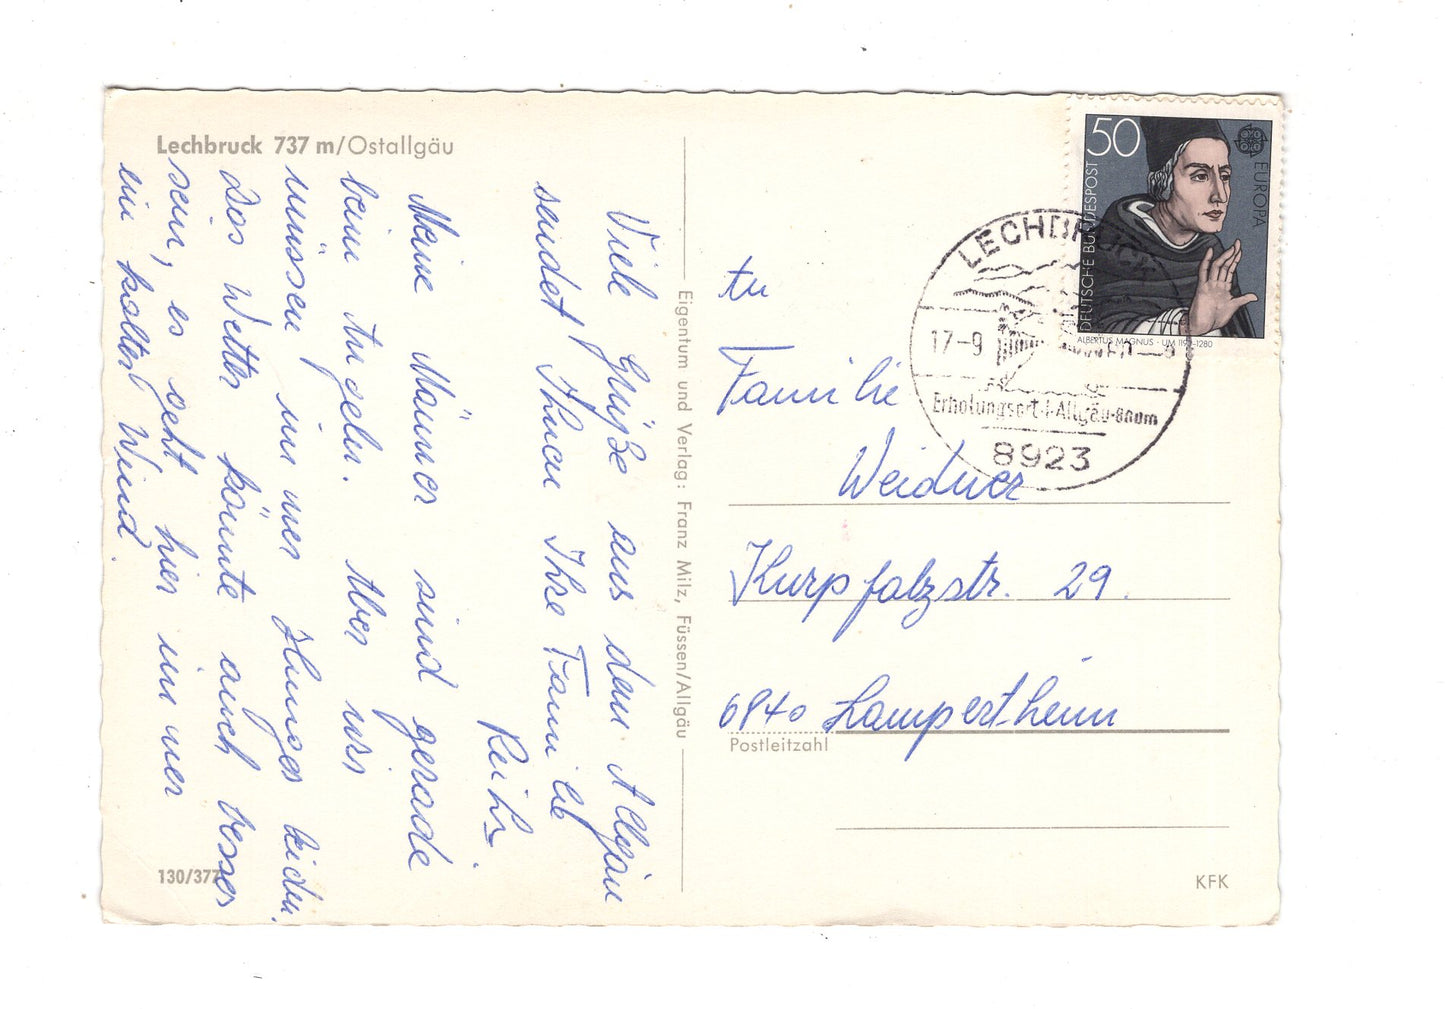 Lechbruck 737 m/Ostallgäu
Viele Grüße aus dem Allgäu
sendet Ihnen Ihre Familie
Meine Männer sind gerade
beim Angeln. Aber wir
müssen immer Hunger leiden.
Das Wetter könnte auch besser
sein, es geht hier immer
ein kalter Wind.
130/377
Eigentum und Verlag: Franz Milz, Füssen/Allgäu
50
DEUTSCHE BUNDESPOST
EUROPA
ALBERTUS MAGNUS · UM 1193-1280
LECHBRUCK
17-9
Erholungsort i. Allgäu
8923
An
Familie
Weidner
Kurpfalzstr. 29.
6840 Lampertheim
Postleitzahl
KFK